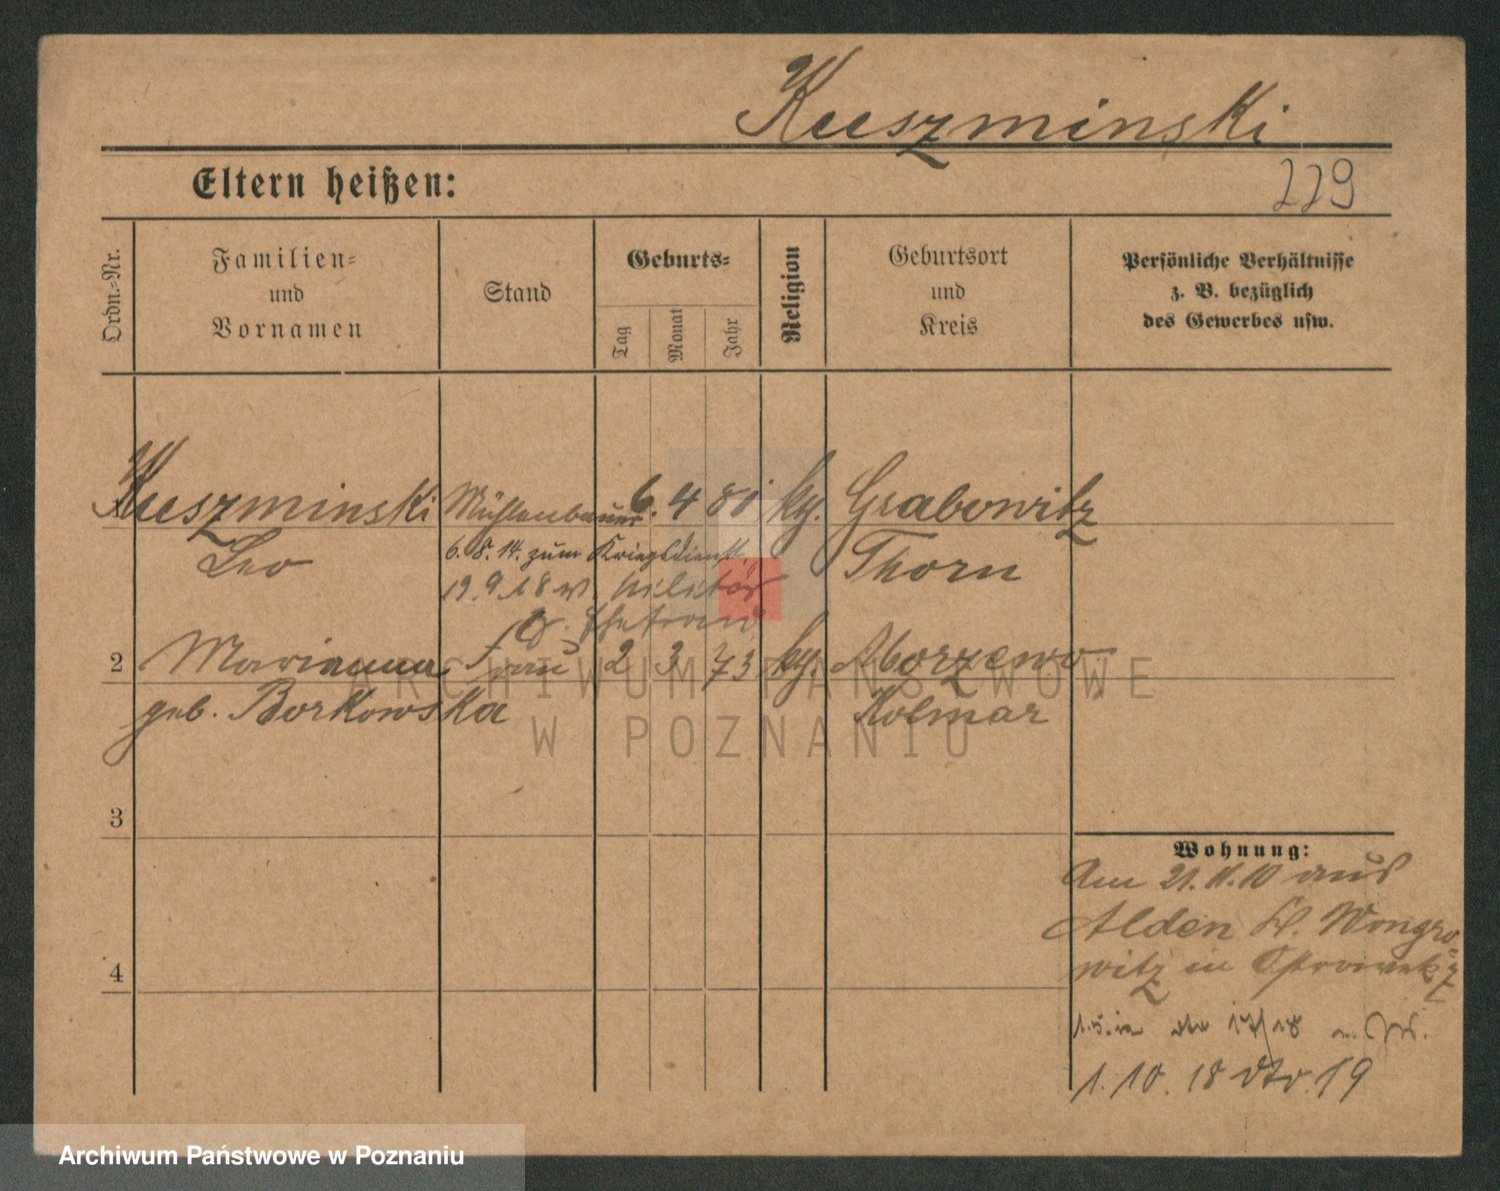 Kuszminski
Eltern heißen:
229
Ordn.-Nr.
Familien-
und
Vornamen
Stand
Geburts-
Tag
Monat
Jahr
Religion
Geburtsort
und
Kreis
Persönliche Verhältnisse
z. B. bezüglich
des Gewerbes usw.
Kuszminski Mühlenbauer 6. 4 80 kg. Grabowitz
Leo Thorn
6. 8. 14. zum Kriegsdienst
19. 9. 18 v. Militär
d. Ehefrau
2 Marianna Frau 2 3 73 kg. Morzewo
geb. Borkowska Kolmar
3
Wohnung:
Am 21. 11. 10 aus
Alden Kr. Wongro-
witz in
4
1. 10. 18 dto. 19
ARCHIWUM PAŃSTWOWE
W POZNANIU
Archiwum Państwowe w Poznaniu